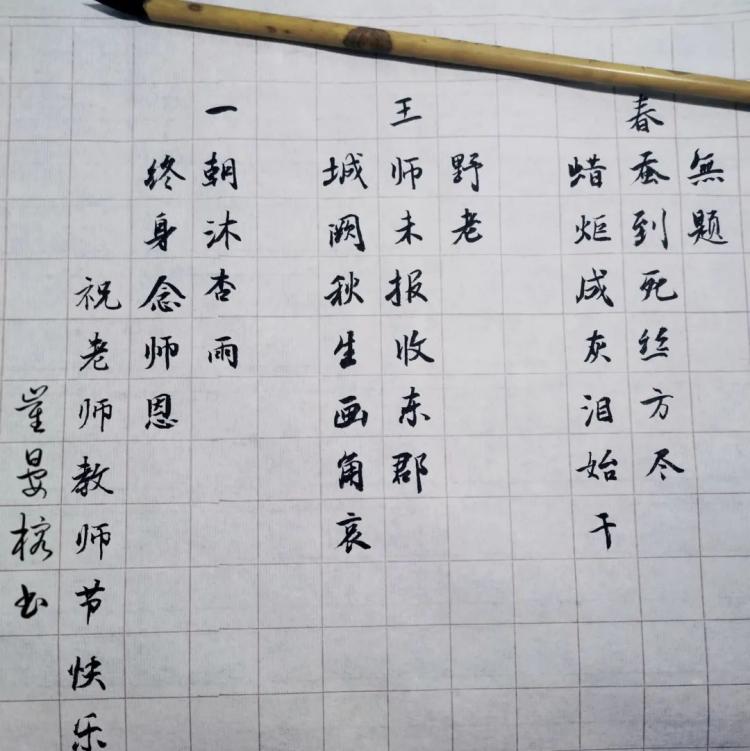 無题
春蚕到死丝方尽
蜡炬成灰泪始干
野老
王师未报收东郡
城阙秋生画角哀
一朝沐杏雨
终身念师恩
祝老师教师节快乐
崔晏榕书